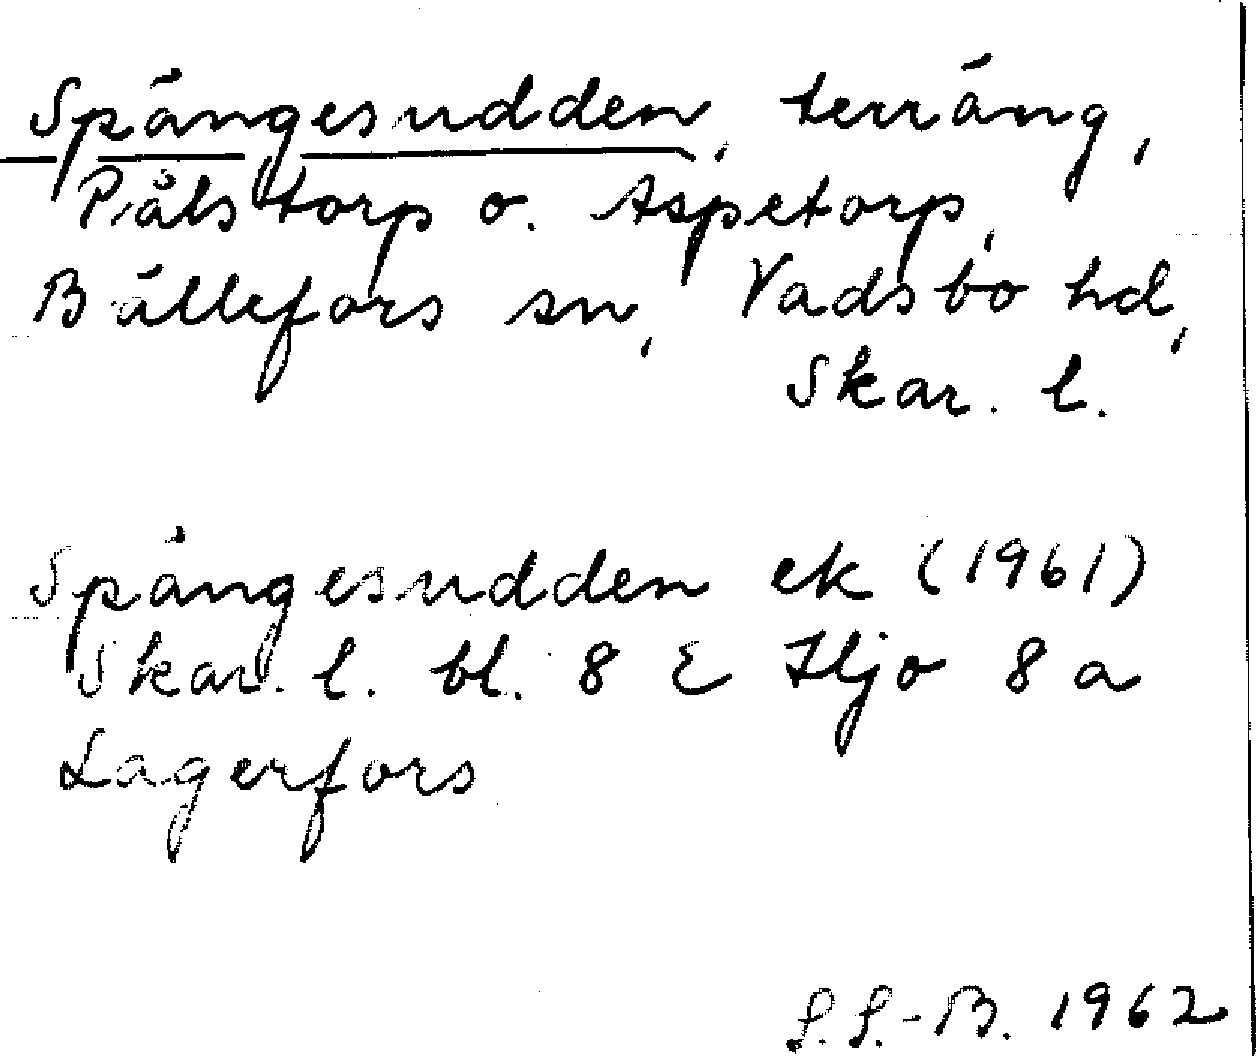 Spängesudden, terräng,
Pålstorp o. Aspetorp,
Bällefors sn, Vadsbo hd,
Skar. l.
Spängesudden ek (1961)
Skar. l. bl. 8 E Hjo 8 a
Lagerfors
S.S.-B. 1962